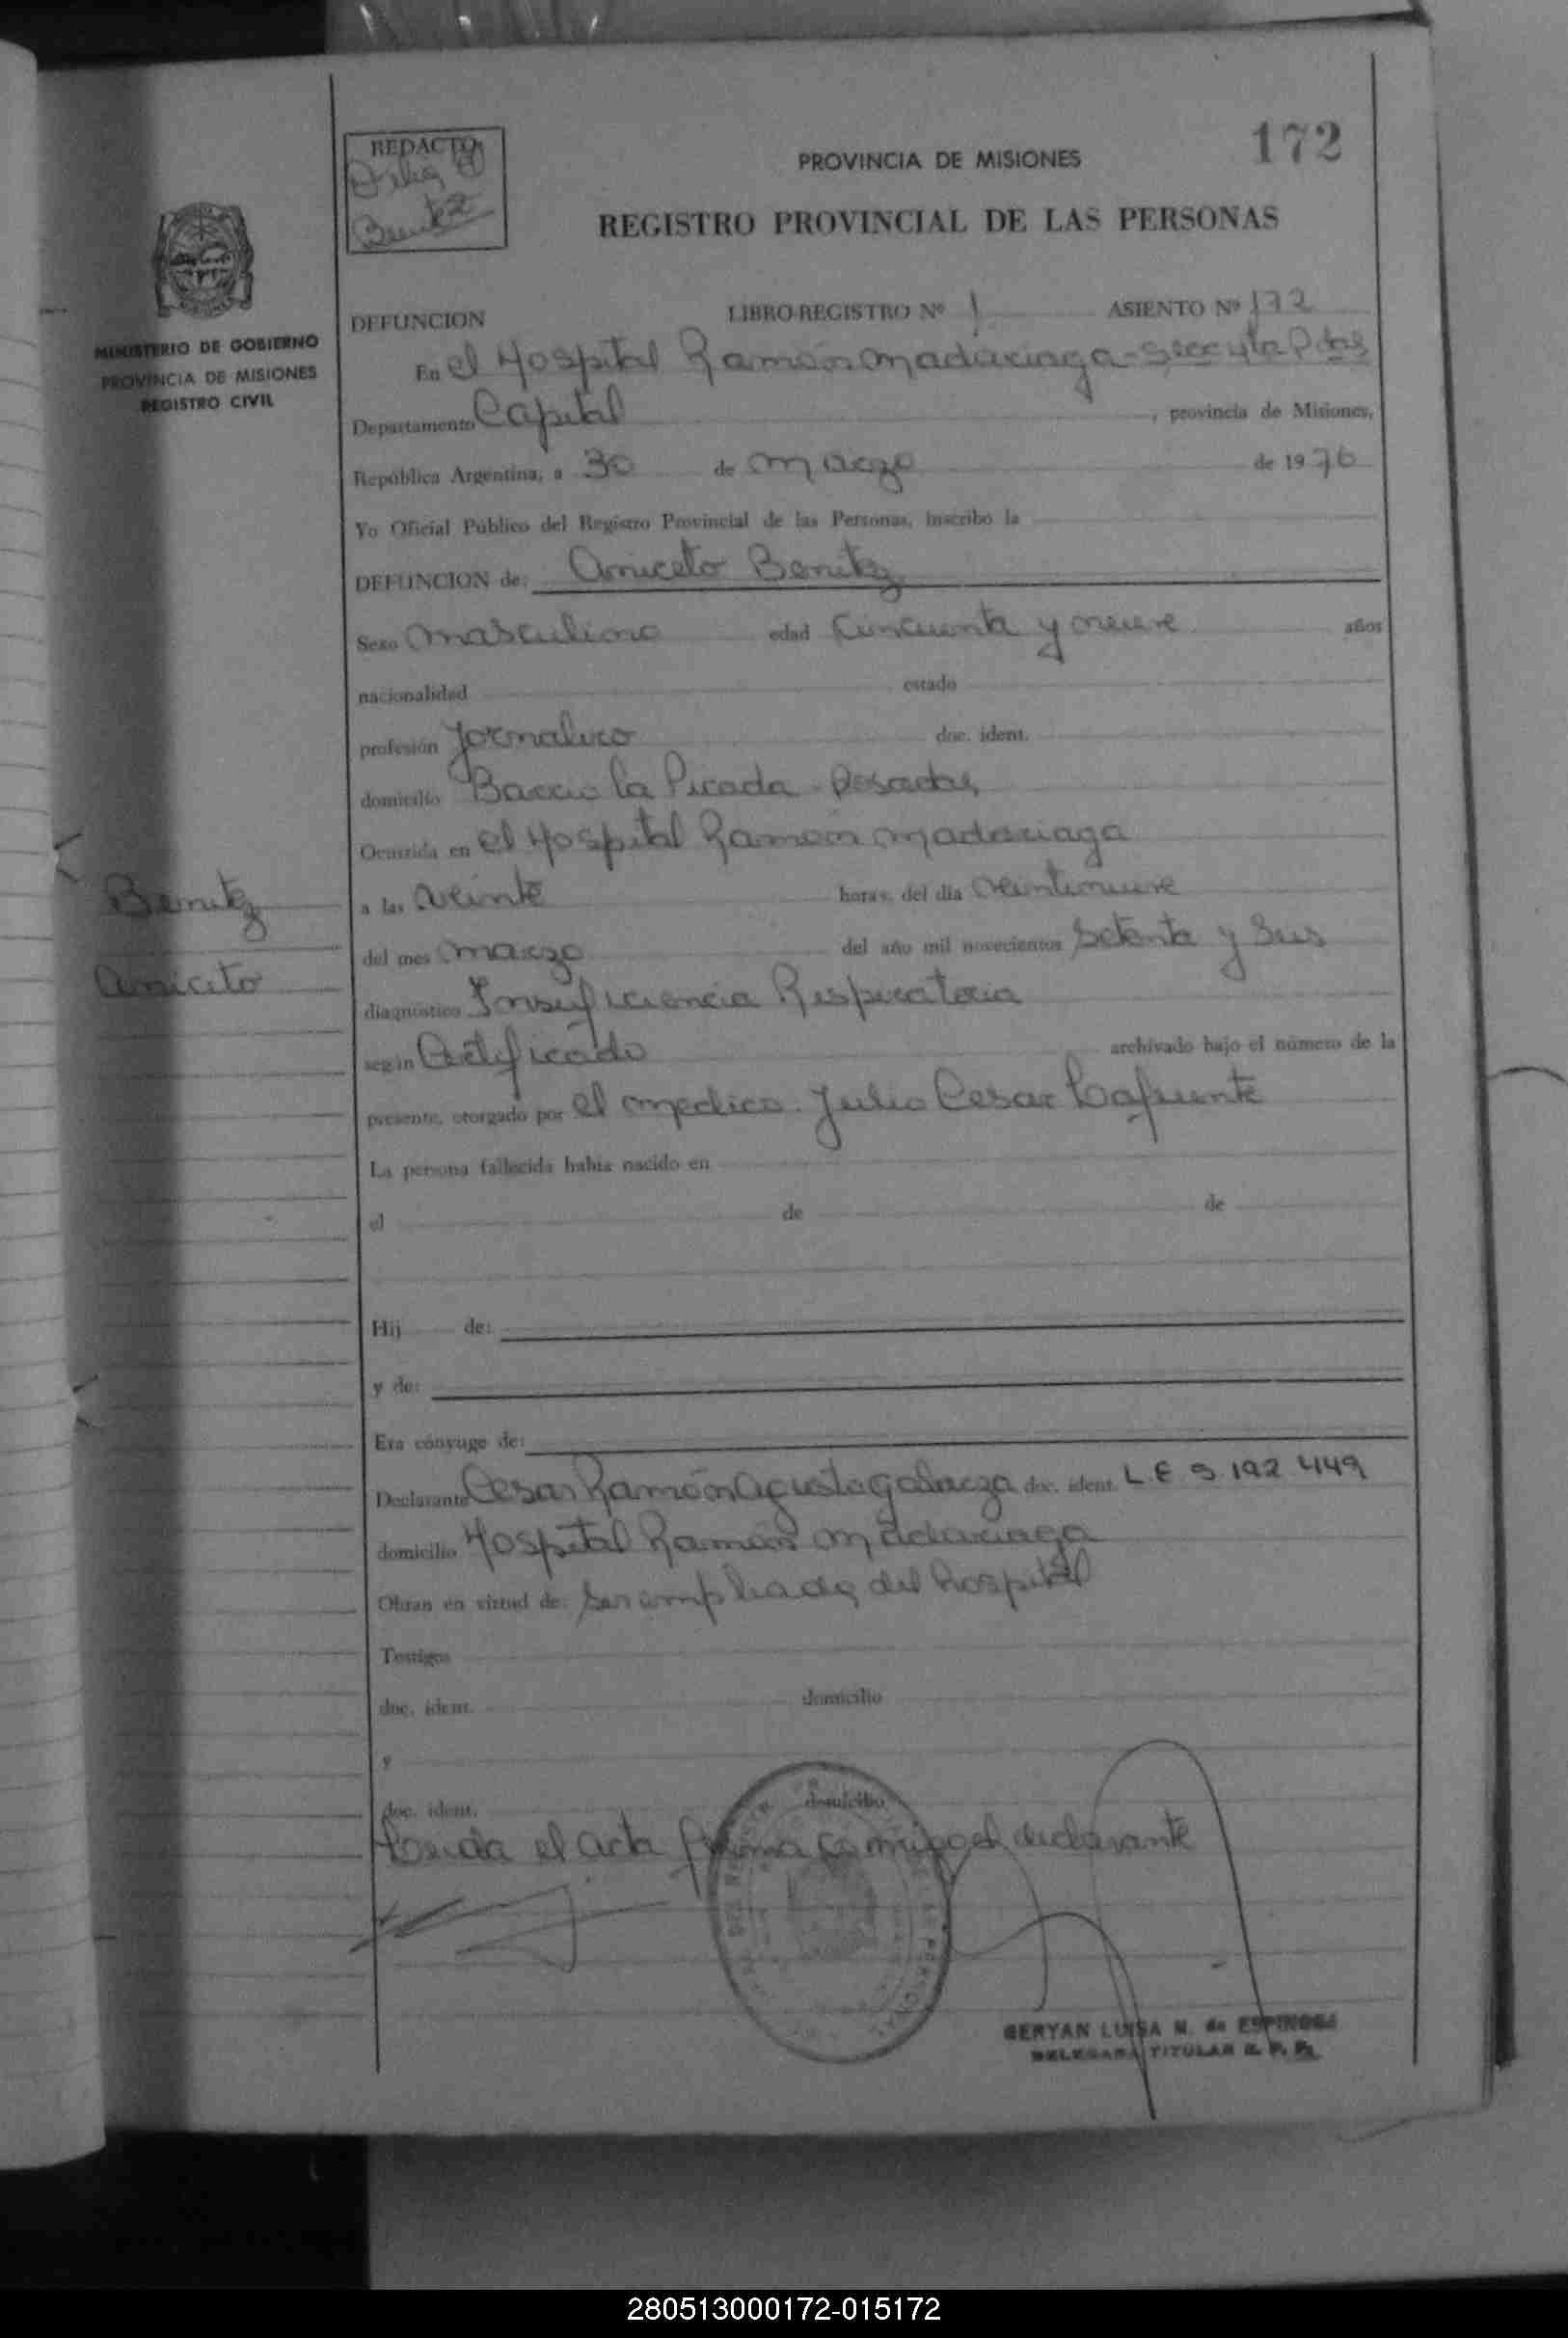 172
REDACTO
Benitez
PROVINCIA DE MISIONES
REGISTRO PROVINCIAL DE LAS PERSONAS
MINISTERIO DE GOBIERNO
PROVINCIA DE MISIONES
REGISTRO CIVIL
DEFUNCION LIBRO-REGISTRO Nº 1 ASIENTO Nº 172
En el Hospital Ramón Madariaga
Departamento Capital, provincia de Misiones,
República Argentina, a 30 de marzo de 1976
Yo Oficial Público del Registro Provincial de las Personas, inscribo la
DEFUNCION de: Aniceto Benitez
Sexo masculino edad Cincuenta y nueve años
nacionalidad estado
profesión Jornalero doc. ident.
domicilio Barrio la Picada - Posadas
Ocurrida en el Hospital Ramón Madariaga
a las veinte horas, del día veintinueve
del mes marzo del año mil novecientos Setenta y Seis
diagnóstico Insuficiencia Respiratoria
según Certificado archivado bajo el número de la
presente, otorgado por el medico Julio Cesar Lafuente
La persona fallecida había nacido en
el de de
Hij de:
y de:
Era cónyuge de:
Declarante Cesar Ramón doc. ident. L.E 5.192 449
domicilio Hospital Ramón Madariaga
Obran en virtud de: Ser empleado del hospital
Testigos
doc. ident. domicilio
y
doc. ident. domicilio
Leida el acta firma conmigo el declarante
Benitez
Aniceto
GERYAN LUISA M. de ESPINOSA
DELEGADA TITULAR R. P. P.
280513000172-015172